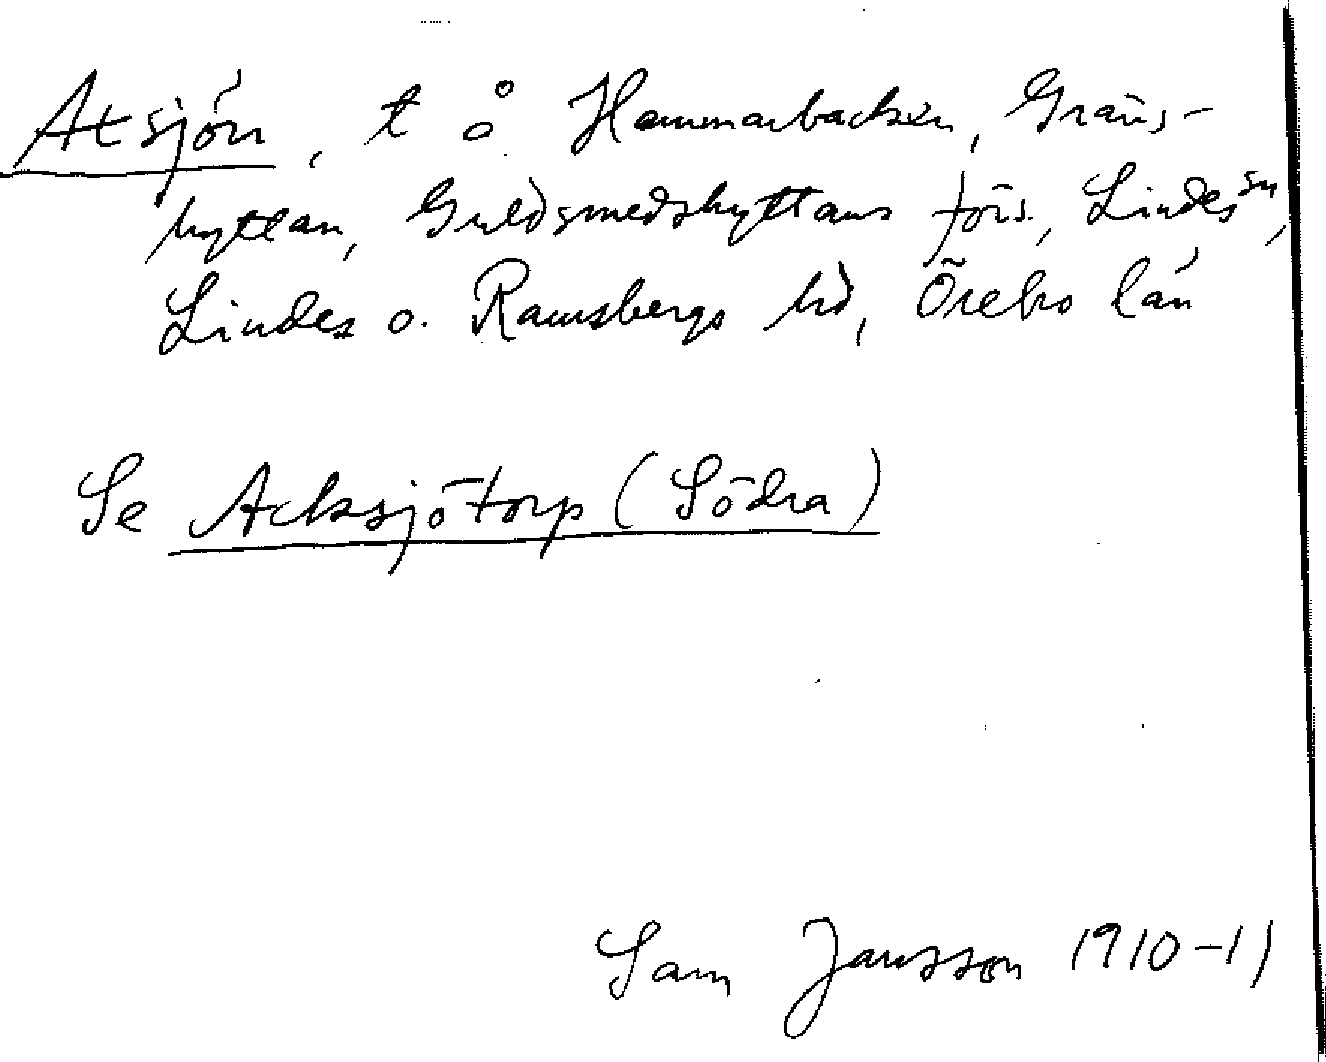 Atsjön, t å Hammarbacken, Gräns-
hyttan, Guldsmedshyttans förs., Lindes sn,
Lindes o. Ramsbergs hd, Örebro län
Se Acksjötorp (Södra)
Sam Jansson 1910-11